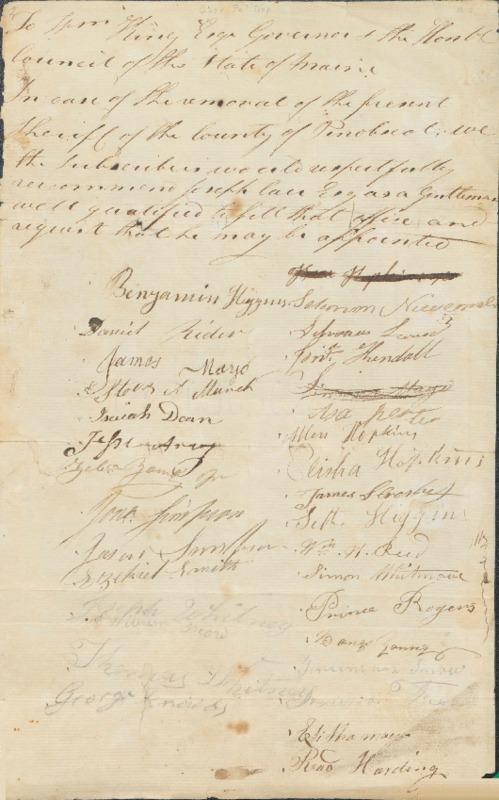 To Wm King Esqr Governor & the Honbl
Council of the State of Maine
In case of the removal of the present
Sheriff of the County of Penobscot, we
the Subscribers would respectfully
recommend Joseph Carr Esq as a Gentleman
well qualified to fill that office and
request that he may be appointed
Benjamin Higgins
Daniel Rider
James Mayo
A March
Isaiah Dean
Young Jr
Simpson
Jason Simpson
Ezekiel Smith
Joseph Whitney
William
Thomas Whitney
George
Hopkins
Solomon Newcomb
Sylvanus
Kendall
Mayo
Asa
Allen Hopkins
Elisha Hopkins
James Crosby
Seth Higgins
Wm H. Reed
Simon Whitmore
Prince Rogers
Young
Snow
Elitha mayo
Read Harding